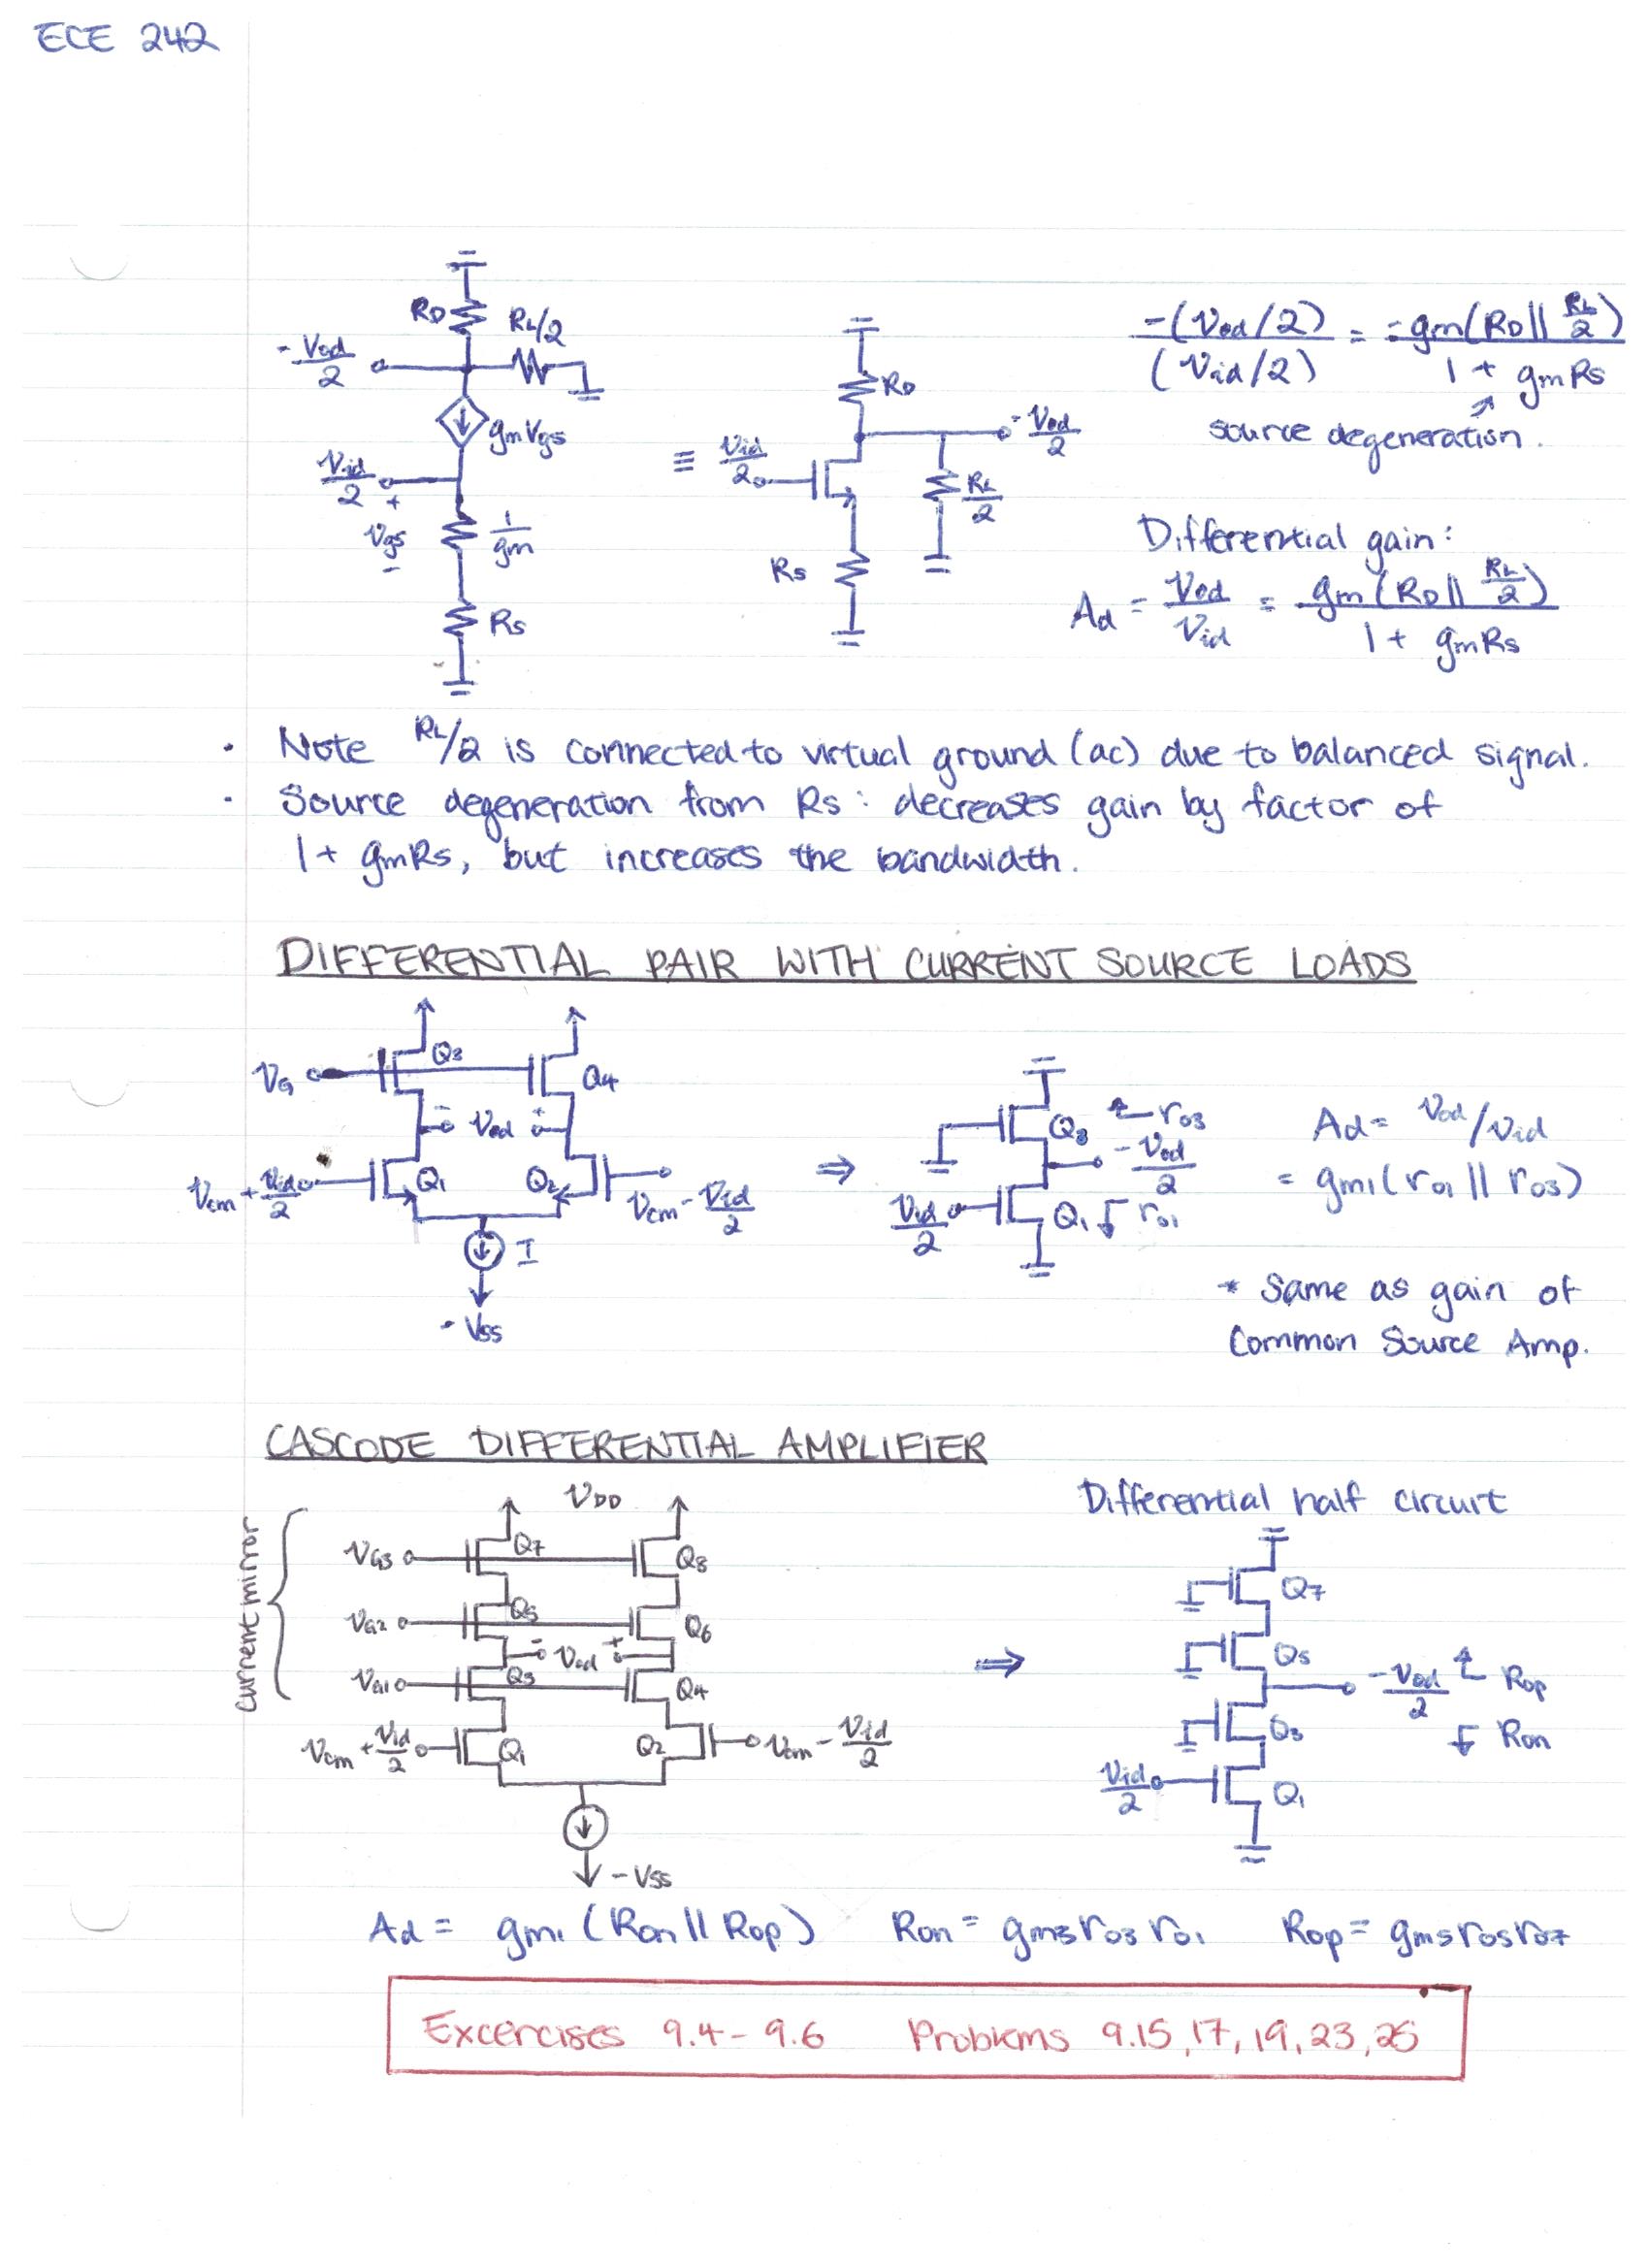 ECE 242
RD
RL/2
-Vod/2
gmVgs
Vid/2
+
Vgs
-
1/gm
Rs
≡
Vid/2
RD
-Vod/2
RL/2
Rs
-(Vod/2)/(Vid/2) = -gm(RD||RL/2)/(1 + gmRs)
source degeneration.
Differential gain:
Ad = Vod/Vid = gm(RD||RL/2)/(1 + gmRs)
· Note RL/2 is connected to virtual ground (ac) due to balanced signal.
· Source degeneration from Rs: decreases gain by factor of
1+ gmRs, but increases the bandwidth.
DIFFERENTIAL PAIR WITH CURRENT SOURCE LOADS
VG
Q3
Q4
- Vod +
Vcm + Vid/2
Q1
Q2
Vcm - Vid/2
I
-Vss
⇒
Q3
ro3
-Vod/2
Vid/2
Q1
ro1
Ad = Vod/Vid
= gm1(ro1 || ro3)
* Same as gain of
Common Source Amp.
CASCODE DIFFERENTIAL AMPLIFIER
current mirror
VDD
VG3
Q7
Q8
VG2
Q5
Q6
- Vod +
VG1
Q3
Q4
Vcm + Vid/2
Q1
Q2
Vcm - Vid/2
-Vss
⇒
Differential half circuit
Q7
Q5
-Vod/2
Rop
Ron
Q3
Vid/2
Q1
Ad = gm1 (Ron || Rop) Ron = gm3ro3ro1 Rop = gm5ro5ro7
Excercises 9.4-9.6 Problems 9.15,17,19,23,25